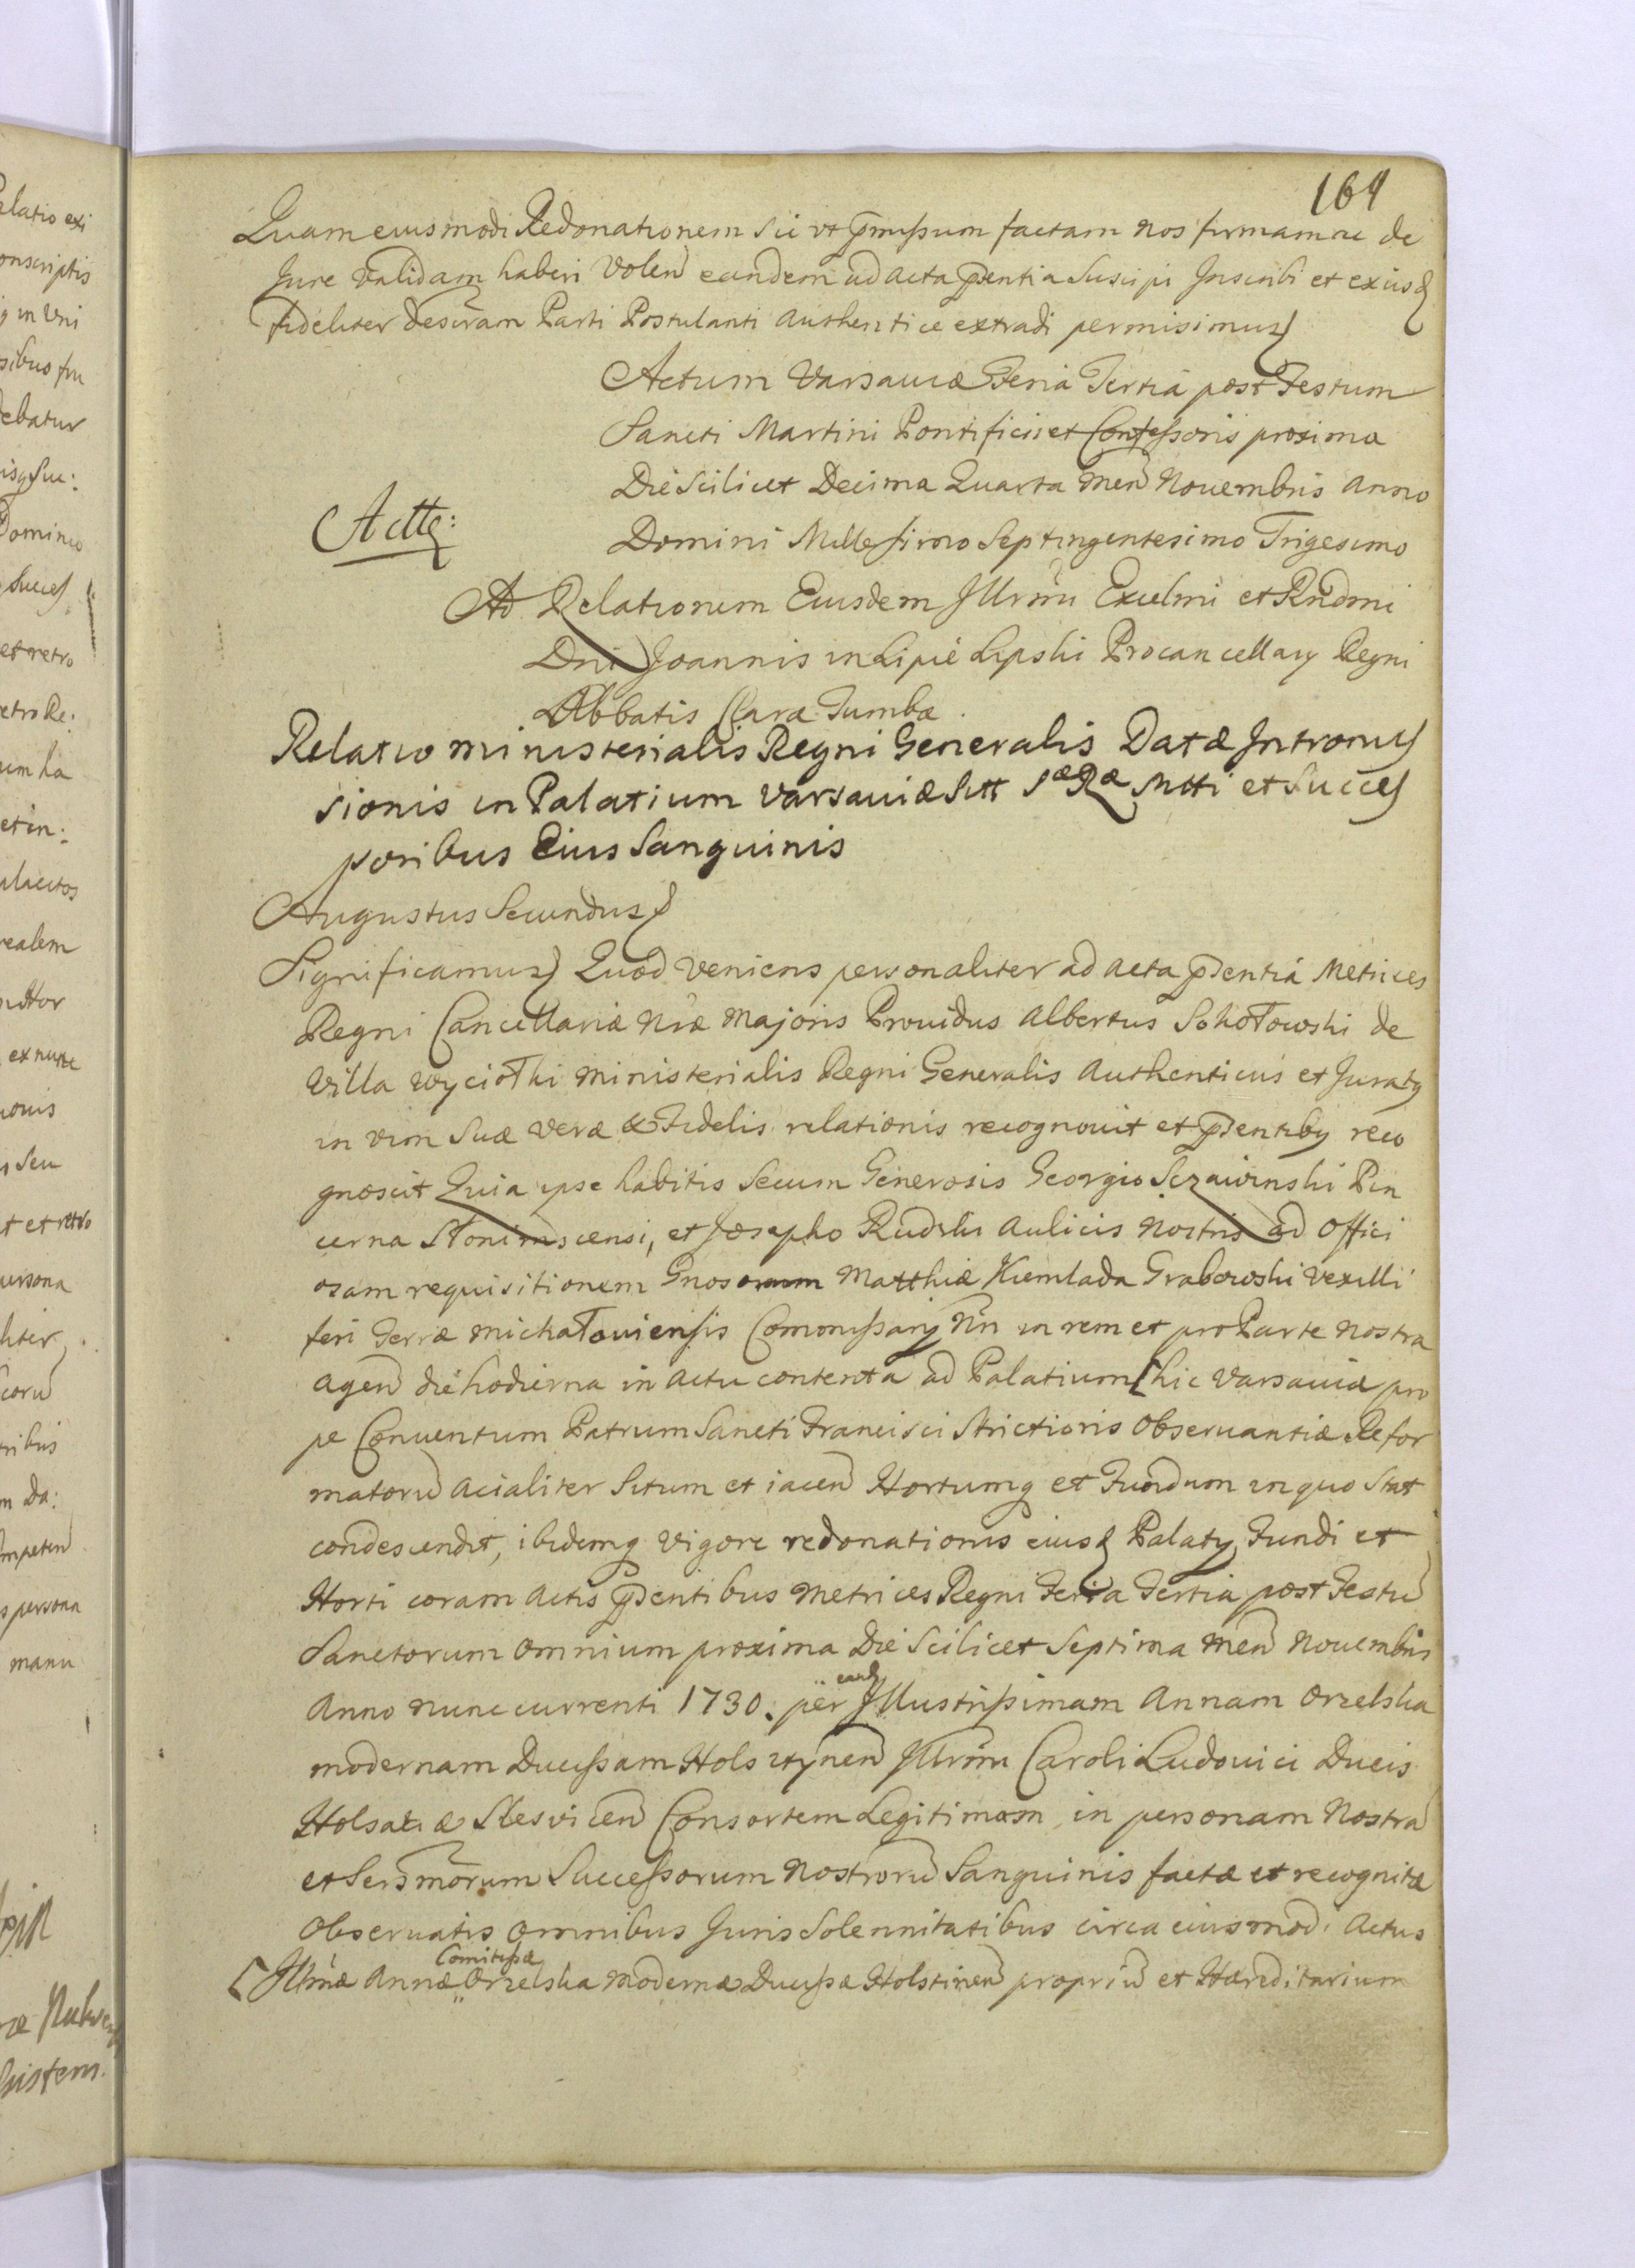 164
Quam eiusmodi Redonationem sic vt pmissum factam nos firmam ac de
Jure validam haberi volen eandem ad acta pntia Suscipi Inscribi et exijsd
fideliter descram Parti Postulanti authentice extradi permisimus
Actum Varsaviæ Feria Tertia post Festum
Sancti Martini Pontificis et Confessoris proxima
Die Scilicet Decima Quarta men Nouembris anno
Actte:
Domini Millesimo Septingentesimo Trigesimo
Ad Relationem Eiusdem Illrmi Excelmi et Rndmi
Dni Joannis in Lipie Lipski Procancellarij Regni
Abbatis Claræ Tumbæ.
Relatio ministerialis Regni Generalis Datæ Intromis
sionis in Palatium Varsaviæ Sitt Sæ Ræ Mtti et Succes
soribus Eius Sanguinis
Augustus Secundus
Significamus Quod veniens personaliter ad acta pntia Metrices
Regni Cancellariæ Nræ Majoris Prouidus Albertus Sokołowski de
Villa Wyciołki ministerialis Regni Generalis Authenticus et Juratq
in vim Suæ veræ & Fidelis relationis recognouit et pntibq reco
gnoscit Quia ipse habitis Secum Generosis Georgio Szczawinski Pin
cerna Słonimscensi, et Josepho Rudzki Aulicis Nostris ad offici
osam requisitionem Gnosorum Matthiæ Kiemlada Grabowski Vexilli
feri Terræ michałouiensis Commissarij Nri in rem et pro Parte nostra
agen die hodierna in actu contenta ad Palatium [hic Varsaviæ pro
pe Conuentum Patrum Sancti Francisci Strictioris Obseruantiæ Refor
matoru acialiter Situm et iacen Hortumq et Fundum in quo Stat
condescendit, ibidemq vigore redonationis eiusd Palatij Fundi et
Horti coram actis pntibus metrices Regni Feria Tertia post Festu
Sanctorum omnium proxima Die Scilicet Septima men Nouembris
Anno nunc currenti 1730. per eand Illustrissimam Annam Orzelska
modernam Ducissam Holsztynen Illrmi Caroli Ludouici Ducis
Holsatiæ Slesvicen Consortem Legitimam in personam Nostra
et Sersmorum Successorum Nostroru Sanguinis factæ et recognitæ
Obseruatis omnibus Juris Solennitatibus circa eiusmodi Actus
[Illmæ Annæ Comitissæ Orzelska modernæ Ducissæ Holstinen propriu et Hæreditarium